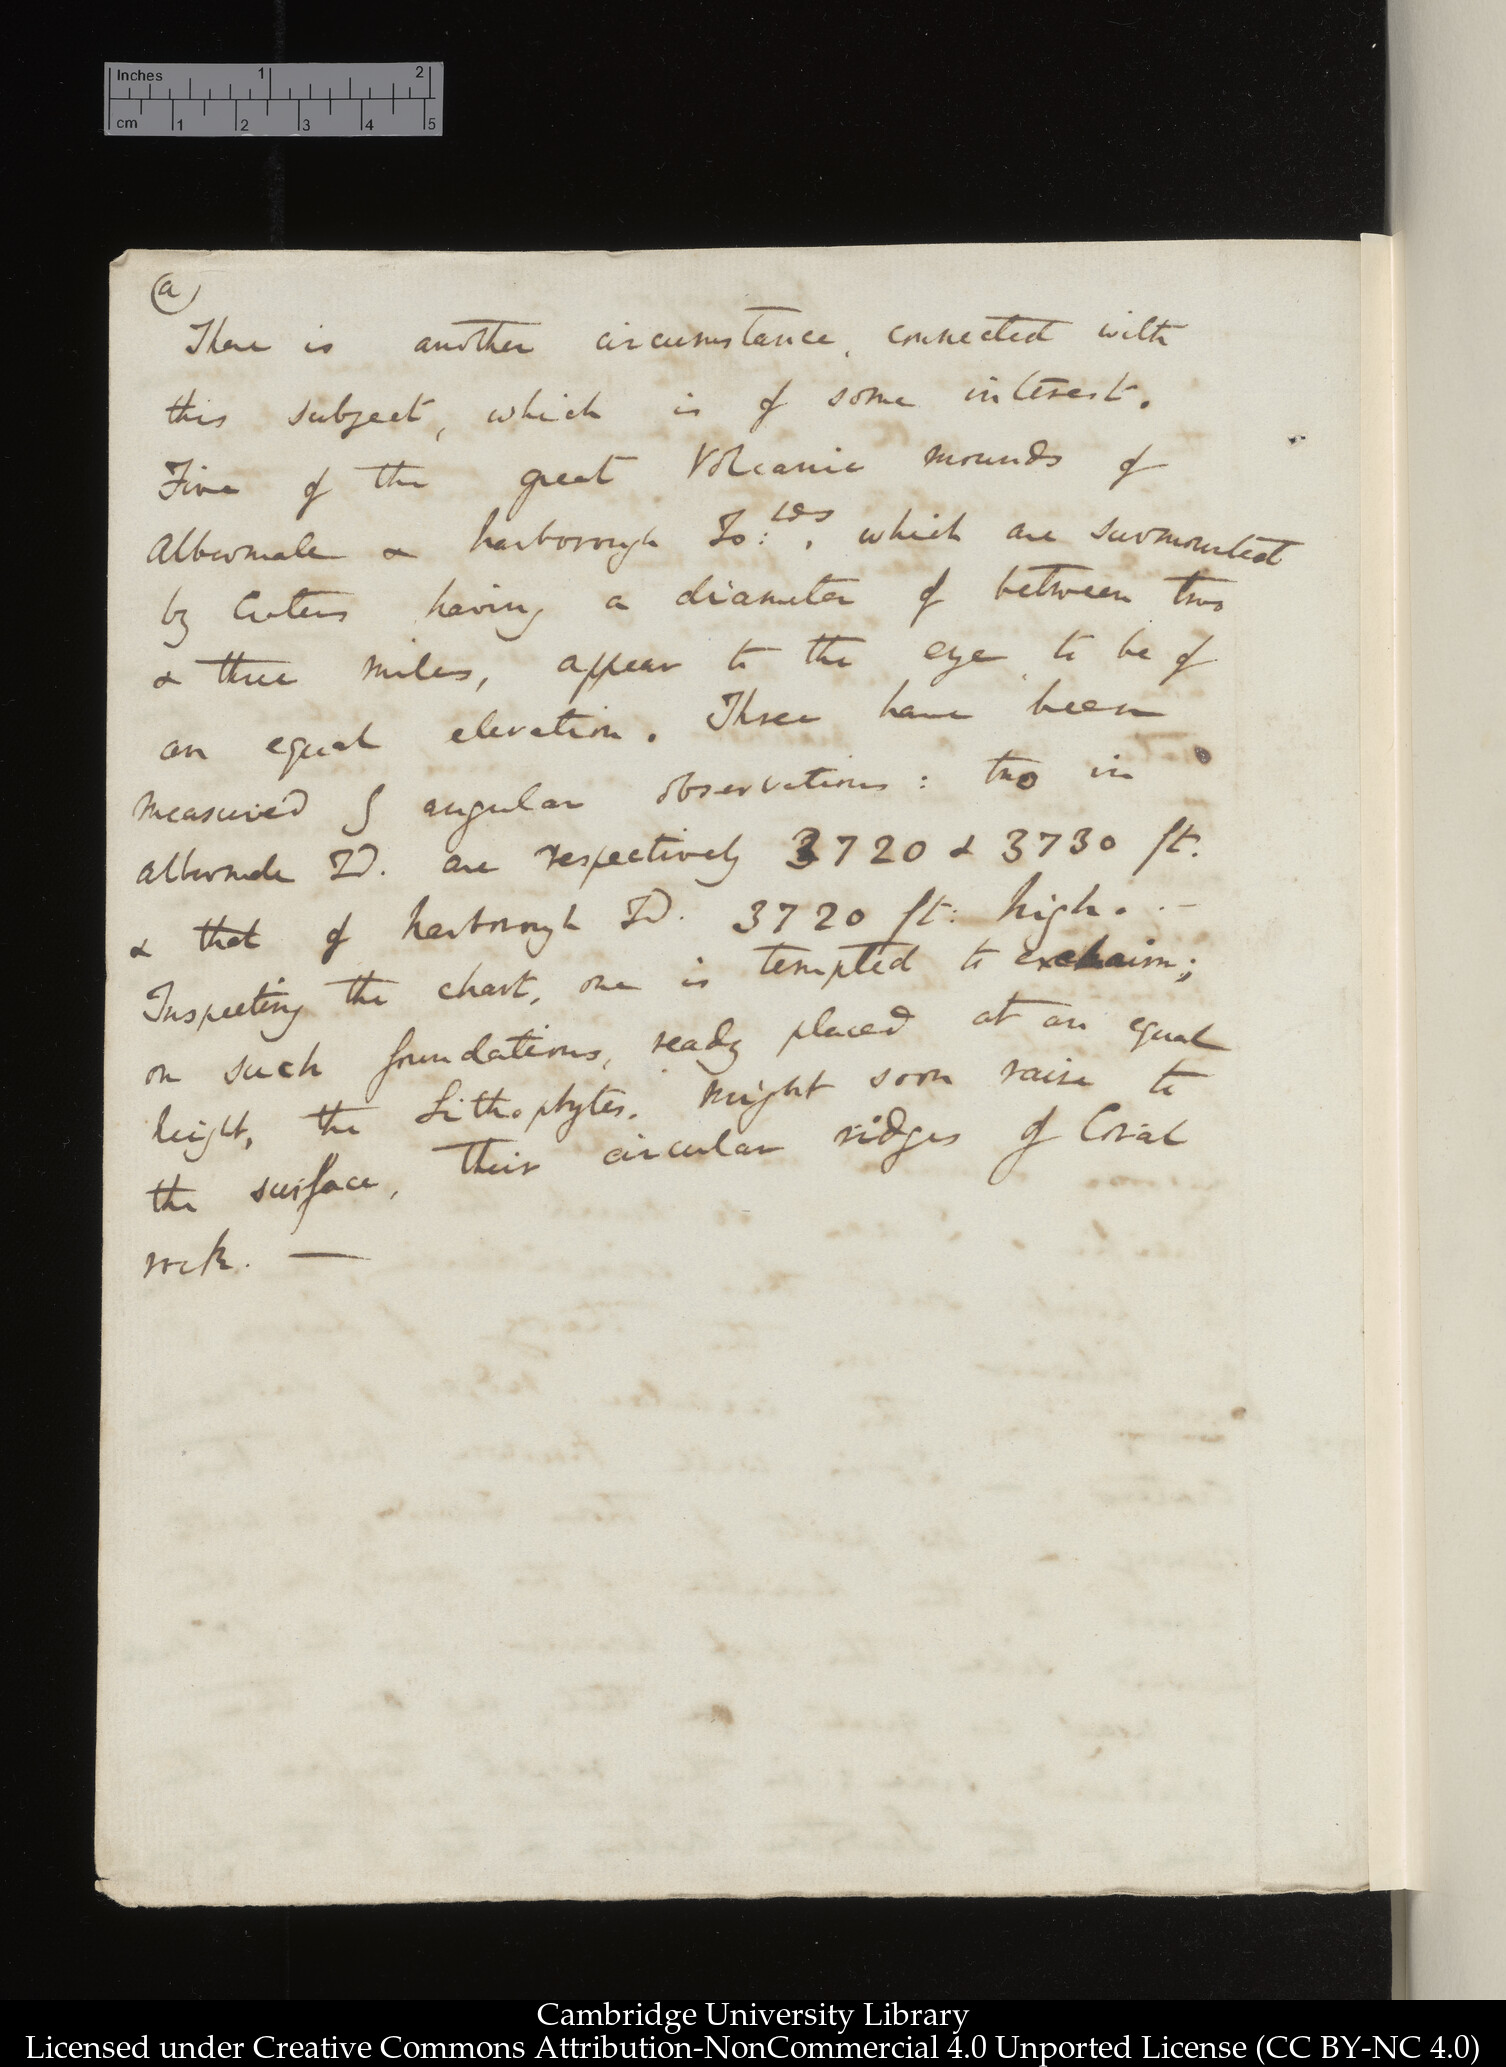 Inches 1 2
cm 1 2 3 4 5
(a)
There is another circumstance, connected with
this subject, which is of some interest.
Five of the great Volcanic mounds of
Albermale & Narborough Is:lds, which are surmounted
by Craters having a diameter of between two
& three miles, appear to the eye to be of
an equal elevation. Three have been
measured by angular observations: two in
Albermale Id. are respectively 3720 & 3730 ft.
& that of Narborough Id. 3720 ft: high. —
Inspecting the chart, one is tempted to exclaim;
on such foundations, ready placed at an equal
height, the Lithophytes, might soon raise to
the surface, their circular ridges of Coral
rock. —
Cambridge University Library
Licensed under Creative Commons Attribution-NonCommercial 4.0 Unported License (CC BY-NC 4.0)